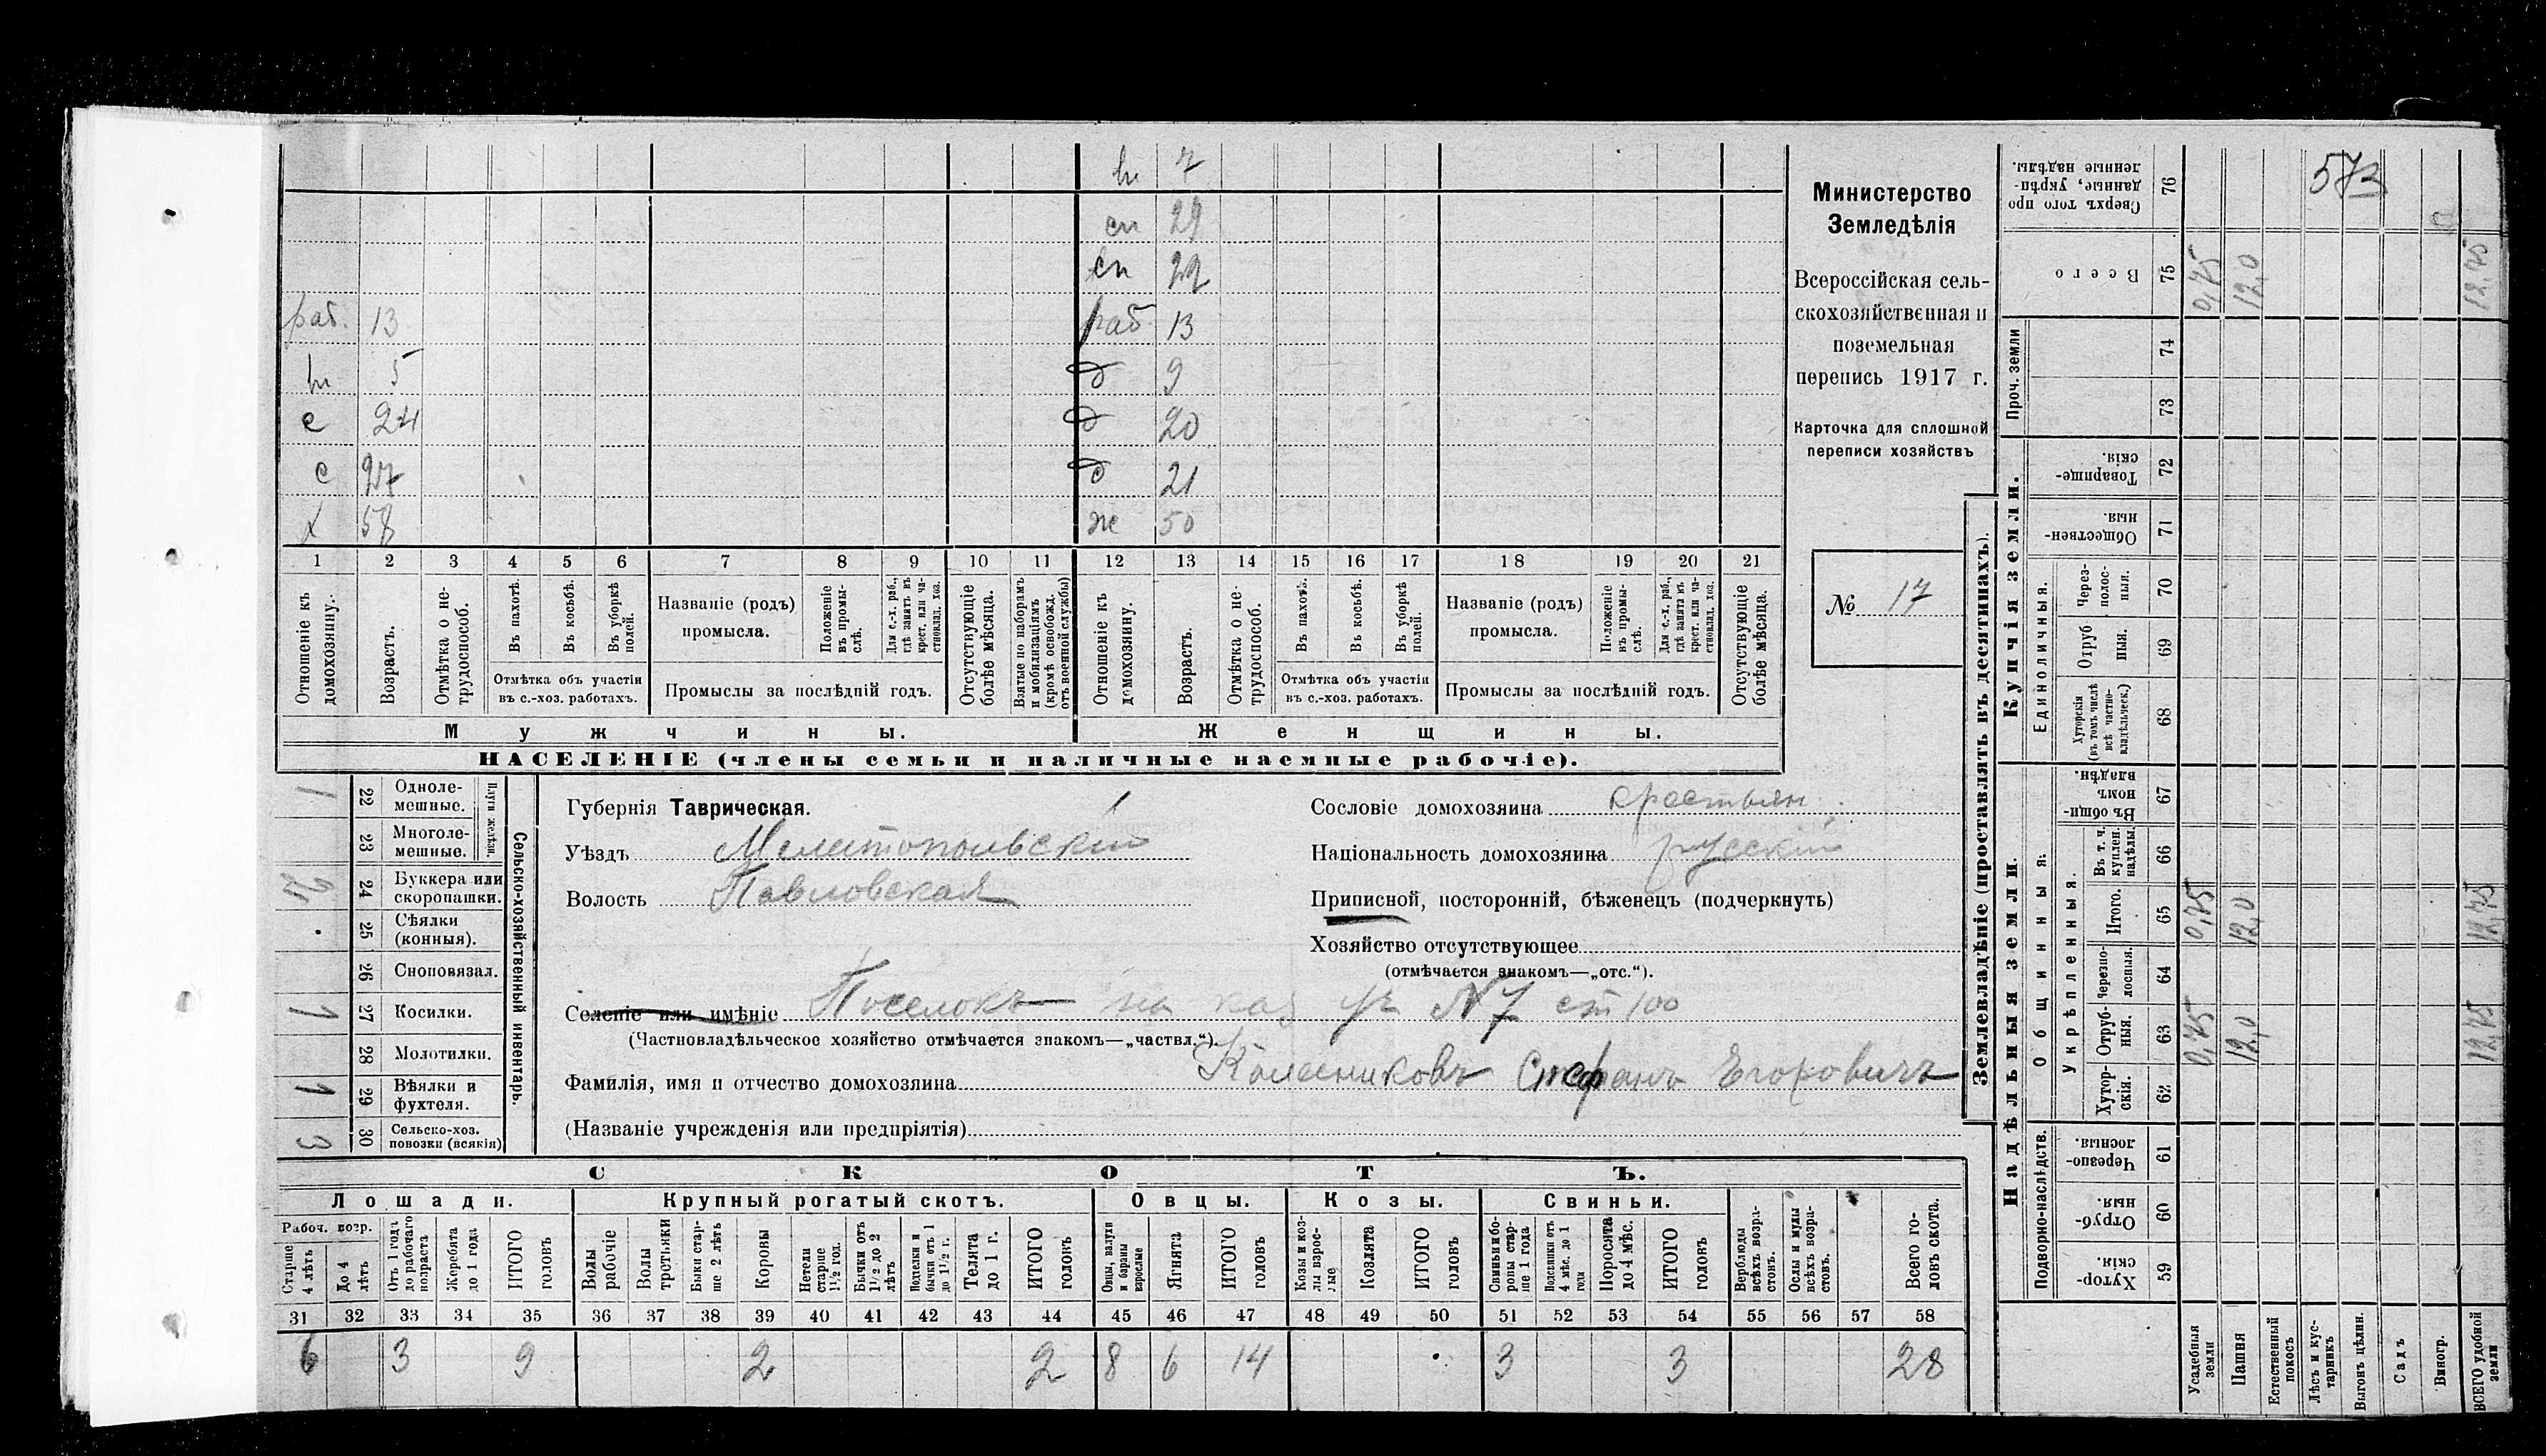 573
Министерство
Земледѣлія
Всероссійская сель-
скохозяйственная и
поземельная
перепись 1917 г.
Карточка для сплошной
переписи хозяйствъ
№ 17
7
сп 29
сп
раб. 13 раб 13
5 д 9
с 24 д 20
с 27 д 21
58 ж 50
1 2 3 4 5 6 7 8 9 10 11 12 13 14 15 16 17 18 19 20 21
Отношеніе къ домохозяину.
Возрастъ.
Отмѣтка о не-
трудоспособ.
Въ пахотѣ.
Въ косьбѣ.
Въ уборкѣ полей.
Отмѣтка объ участіи
въ с.-хоз. работахъ.
Названіе (родъ)
промысла.
Положеніе въ промы-
слѣ.
Для с.-х. раб., гдѣ занятъ въ крест. или ча-
стновлад. хоз.
Промыслы за послѣдній годъ.
Отсутствующіе
болѣе мѣсяца.
Взятые по наборамъ
и мобилизаціямъ
(кромѣ освобожд.
отъ военной службы)
Отношеніе къ
домохозяину.
Возрастъ.
Отмѣтка о не-
трудоспособ.
Въ пахотѣ.
Въ косьбѣ.
Въ уборкѣ полей.
Отмѣтка объ участіи
въ с.-хоз. работахъ.
Названіе (родъ)
промысла.
Положеніе въ промы-
слѣ.
Для с.-х. раб., гдѣ занята въ крест. или ча-
стновлад. хоз.
Промыслы за послѣдній годъ.
Отсутствующіе
болѣе мѣсяца.
Мужчины.
Женщины.
НАСЕЛЕНІЕ (члены семьи и наличные наемные рабочіе).
Сельско-хозяйственный инвентарь.
Плуги желѣзн.
22 Одноле-
мешные. 1
23 Многоле-
мешные.
24 Буккера или
скоропашки.
25 Сѣялки
(конныя).
26 Сноповязал.
27 Косилки. 1
28 Молотилки.
29 Вѣялки и
фухтеля. 1
30 Сельско-хоз.
повозки (всякія) 3
Губернія Таврическая.
Уѣздъ Мелитопольскій
Волость Павловская
Сословіе домохозяина крестьян.
Національность домохозяина русскій
Приписной, посторонній, бѣженецъ (подчеркнуть)
Хозяйство отсутствующее
(отмѣчается знакомъ—„отс.“).
Селеніе или имѣніе Поселокъ на каз уч N7 ст 100
(Частновладѣльческое хозяйство отмѣчается знакомъ—„частвл.“).
Фамилія, имя и отчество домохозяина Колесниковъ Стефанъ Егоровичъ
(Названіе учрежденія или предпріятія)
СКОТЪ.
Лошади. Крупный рогатый скотъ. Овцы. Козы. Свиньи.
Рабоч. возр.
Старше
4 лѣтъ
До 4
лѣтъ
Отъ 1 года
до рабочаго
возраста
Жеребята
до 1 года
ИТОГО
головъ
Волы
рабочіе
Волы
третьяки
Быки стар-
ше 2 лѣтъ
Коровы
Нетели
старше
1½ год.
Бычки отъ
1½ до 2
лѣтъ
Подтелки и
бычки отъ 1
до 1½ г.
Телята
до 1 г.
ИТОГО
головъ
Овцы, валухи
и бараны
взрослые
Ягнята
ИТОГО
головъ
Козы и коз-
лы взрос-
лые
Козлята
ИТОГО
головъ
Свиньи и бо-
ровы стар-
ше 1 года
Подсвинки отъ
4 мѣс. до 1
года
Поросята
до 4 мѣс.
ИТОГО
головъ
Верблюды
всѣхъ возра-
стовъ.
Ослы и мулы
всѣхъ возра-
стовъ.
Всего го-
ловъ скота.
31 32 33 34 35 36 37 38 39 40 41 42 43 44 45 46 47 48 49 50 51 52 53 54 55 56 57 58
6 3 9 2 2 8 6 14 3 3 28
Землевладѣніе (проставлять въ десятинахъ).
Надѣльныя земли.
Купчія земли.
Проч. земли
Подворно-наслѣдств.
Общинныя.
Укрѣпленныя.
Единоличныя.
Хутор-
скія. 59
Отруб-
ныя. 60
Черезпо-
лосныя. 61
Хутор-
скія. 62
Отруб-
ныя. 63
Черезпо-
лосныя. 64
Итого. 65
Въ т. ч.
куплен.
надѣлы. 66
Въ общи-
номъ
владѣн. 67
Хуторскія
(въ томъ числѣ
всѣ частно-
владѣльческ.) 68
Отруб
ныя. 69
Через-
полос-
ныя. 70
Обществен-
ныя. 71
Товарище-
скія. 72
73
74
Всего 75
Сверхъ того про
данные, укрѣп-
ленные надѣлы. 76
Усадебныя
земли 0,75 0,75 0,75
Пашня 12,0 12,0 12,0
Естественный
покосъ
Лѣсъ и кус-
тарникъ
Выгонъ цѣлин.
Садъ
Виногр.
ВСЕГО удобной
земли 12,75 12,75 12,75